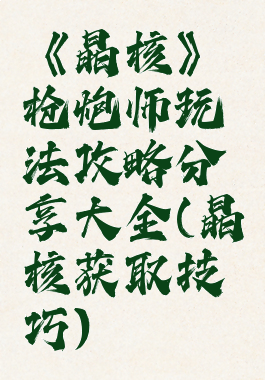 《晶核》
枪炮师玩
法攻略分
享大全(晶
核获取技
巧)